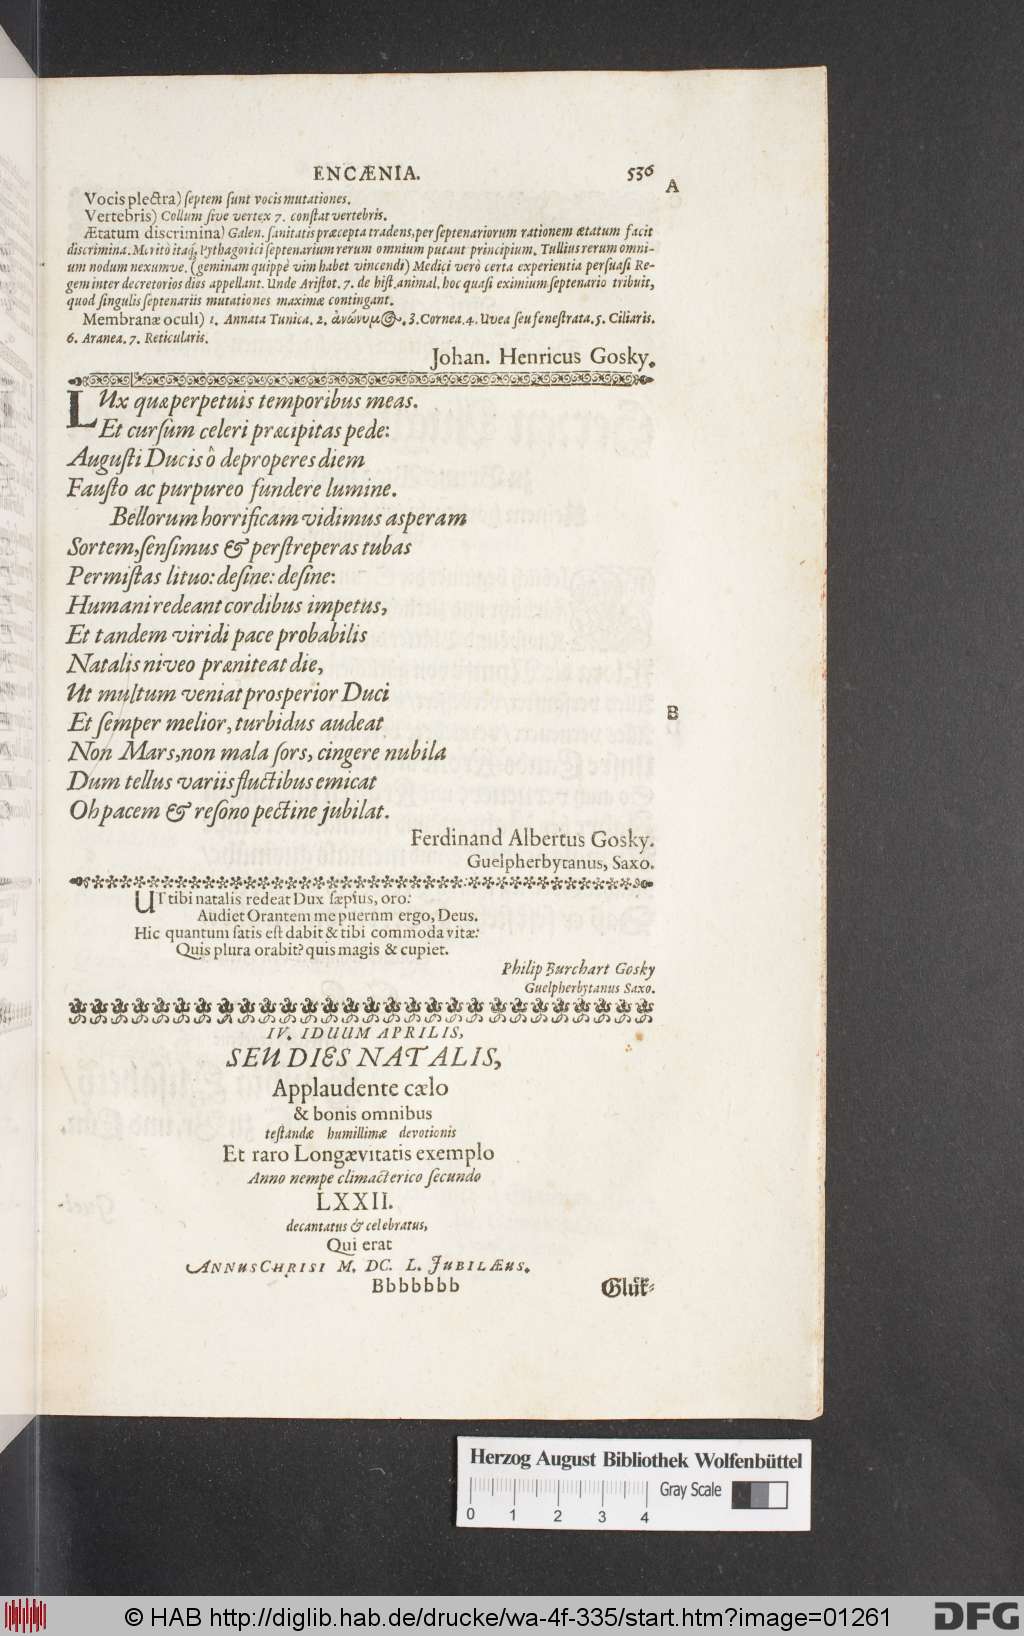 ENCÆNIA. 536
A
Vocis plectra) ſeptem ſunt vocis mutationes.
Vertebris) Collum ſive vertex 7. conſtat vertebris.
Ætatum discrimina) Galen. ſanitatis præcepta tradens, per ſeptenariorum rationem ætatum facit
diſcrimina. Meritò itaq; Pythagorici ſeptenarium rerum omnium putant principium. Tullius rerum omni-
um nodum nexumve. (geminam quippè vim habet vincendi) Medici verò certa experientia perſuaſi Re-
gem inter decretorios dies appellant. Unde Ariſtot. 7. de hiſt. animal. hoc quaſi eximium ſeptenario tribuit,
quod ſingulis ſeptenariis mutationes maximæ contingant.
Membranæ oculi) 1. Annata Tunica. 2. ἀνώνυμος. 3. Cornea. 4. Uvea ſeu feneſtrata. 5. Ciliaris.
6. Aranea. 7. Reticularis.
Johan. Henricus Gosky.
LUx quæ perpetuis temporibus meas.
Et curſum celeri præcipitas pede:
Auguſti Ducis ô deproperes diem
Fauſto ac purpureo fundere lumine.
Bellorum horrificam vidimus asperam
Sortem, ſenſimus & perſtreperas tubas
Permiſtas lituo: deſine: deſine:
Humani redeant cordibus impetus,
Et tandem viridi pace probabilis
Natalis niveo præniteat die,
Ut multum veniat prosperior Duci
Et ſemper melior, turbidus audeat
Non Mars, non mala ſors, cingere nubila
Dum tellus variis fluctibus emicat
Ob pacem & reſono pectine jubilat.
B
Ferdinand Albertus Gosky.
Guelpherbytanus, Saxo.
UT tibi natalis redeat Dux ſæpius, oro:
Audiet Orantem me puerum ergo, Deus.
Hic quantum ſatis eſt dabit & tibi commoda vitæ:
Quis plura orabit? quis magis & cupiet.
Philip Burchart Gosky
Guelpherbytanus Saxo.
IV. IDUUM APRILIS,
SEU DIES NATALIS,
Applaudente cælo
& bonis omnibus
teſtandæ humillimæ devotionis
Et raro Longævitatis exemplo
Anno nempe climacterico ſecundo
LXXII.
decantatus & celebratus,
Qui erat
ANNUS CHRISI M. DC. L. JUBILÆUS.
Bbbbbbb Gluͤk⸗
Herzog August Bibliothek Wolfenbüttel
Gray Scale
0 1 2 3 4
© HAB http://diglib.hab.de/drucke/wa-4f-335/start.htm?image=01261
DFG